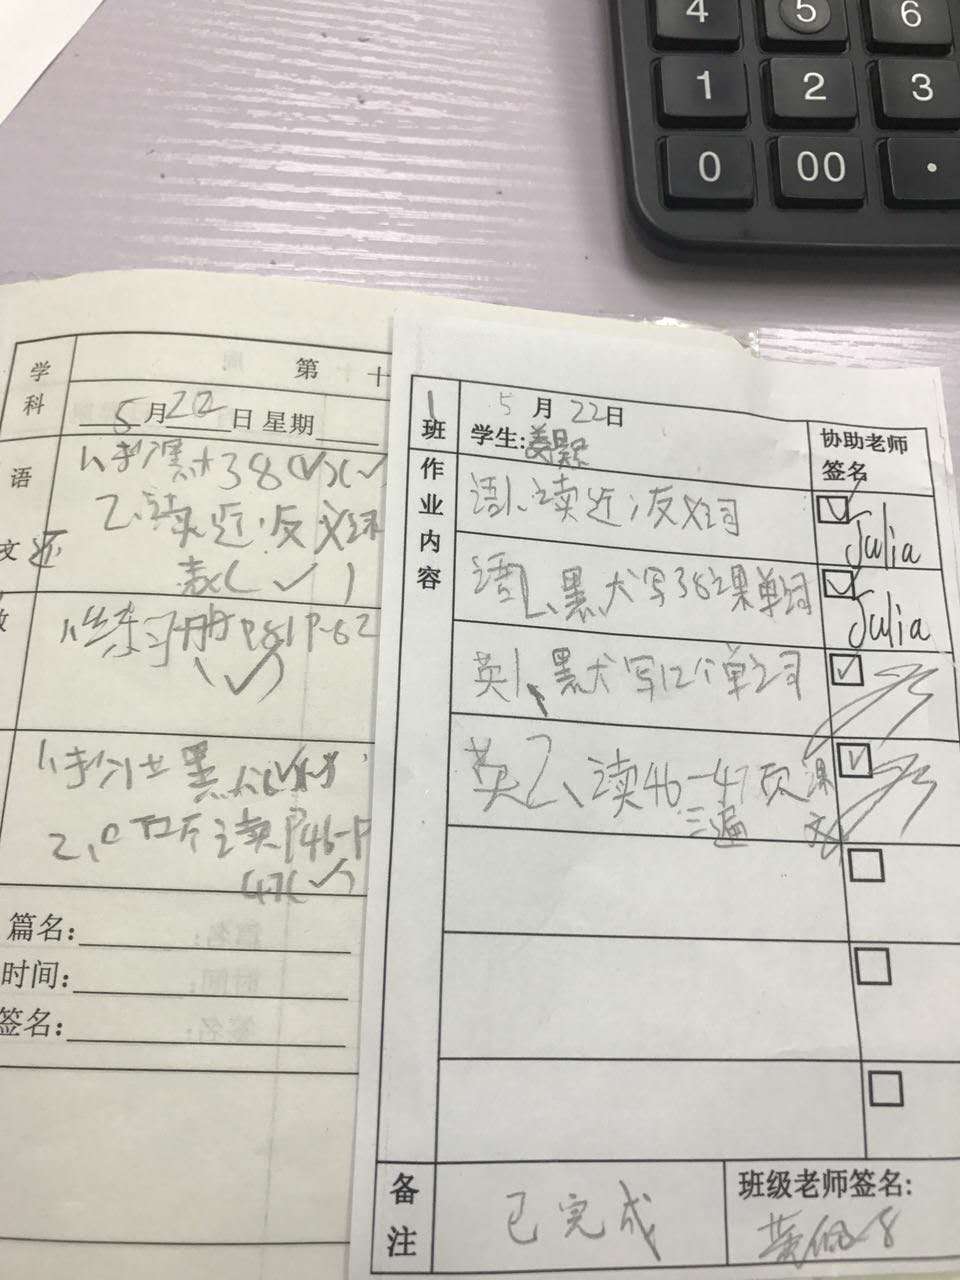 4 5 6
1 2 3
0 00 .
学科
第十
5月22日 星期
语文
1、手 默 38(✓)(✓
2、读近、反义词
表(✓)
1、练习册P81P-82
(✓)
2、读P46-P
47(✓)
篇名:
时间:
签名:
1班
5月22日
学生:
协助老师
签名
作业内容
语1、读近、反义词
Julia
语2、黑犬写38课单词
Julia
英1、黑犬写12个单词
英2、读46-47页课
三遍 文
备注
已完成
班级老师签名: